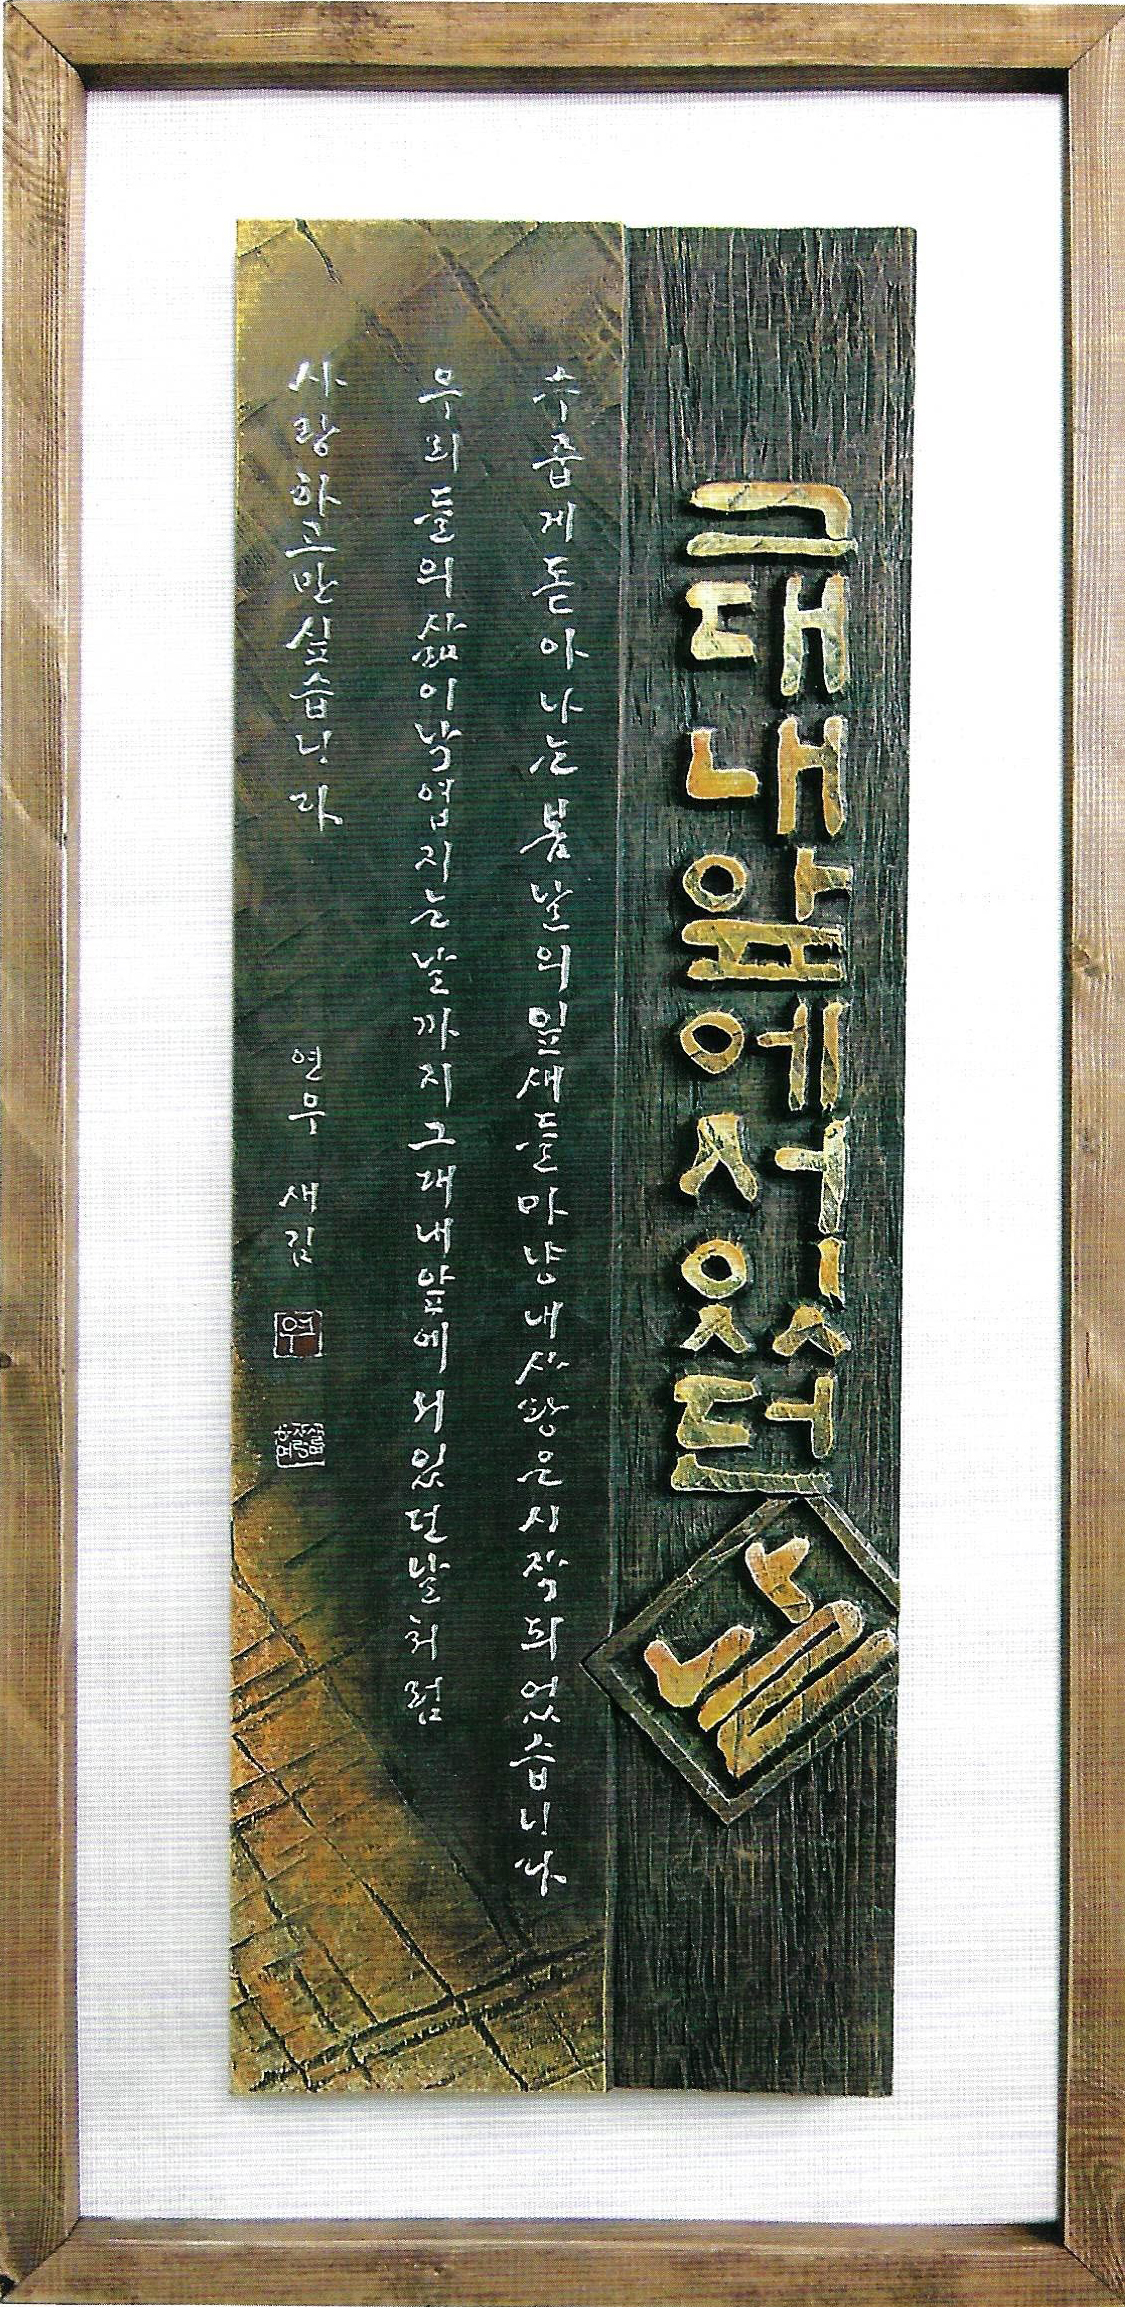 그대 내 앞에 서 있던 날
수줍게 돋아나는 봄날의 잎새들마냥 내 사랑은 시작되었습니다
우리들의 삶이 낙엽지는 날까지 그대 내 앞에 서 있던 날처럼
사랑하고만 싶습니다
연우 새김